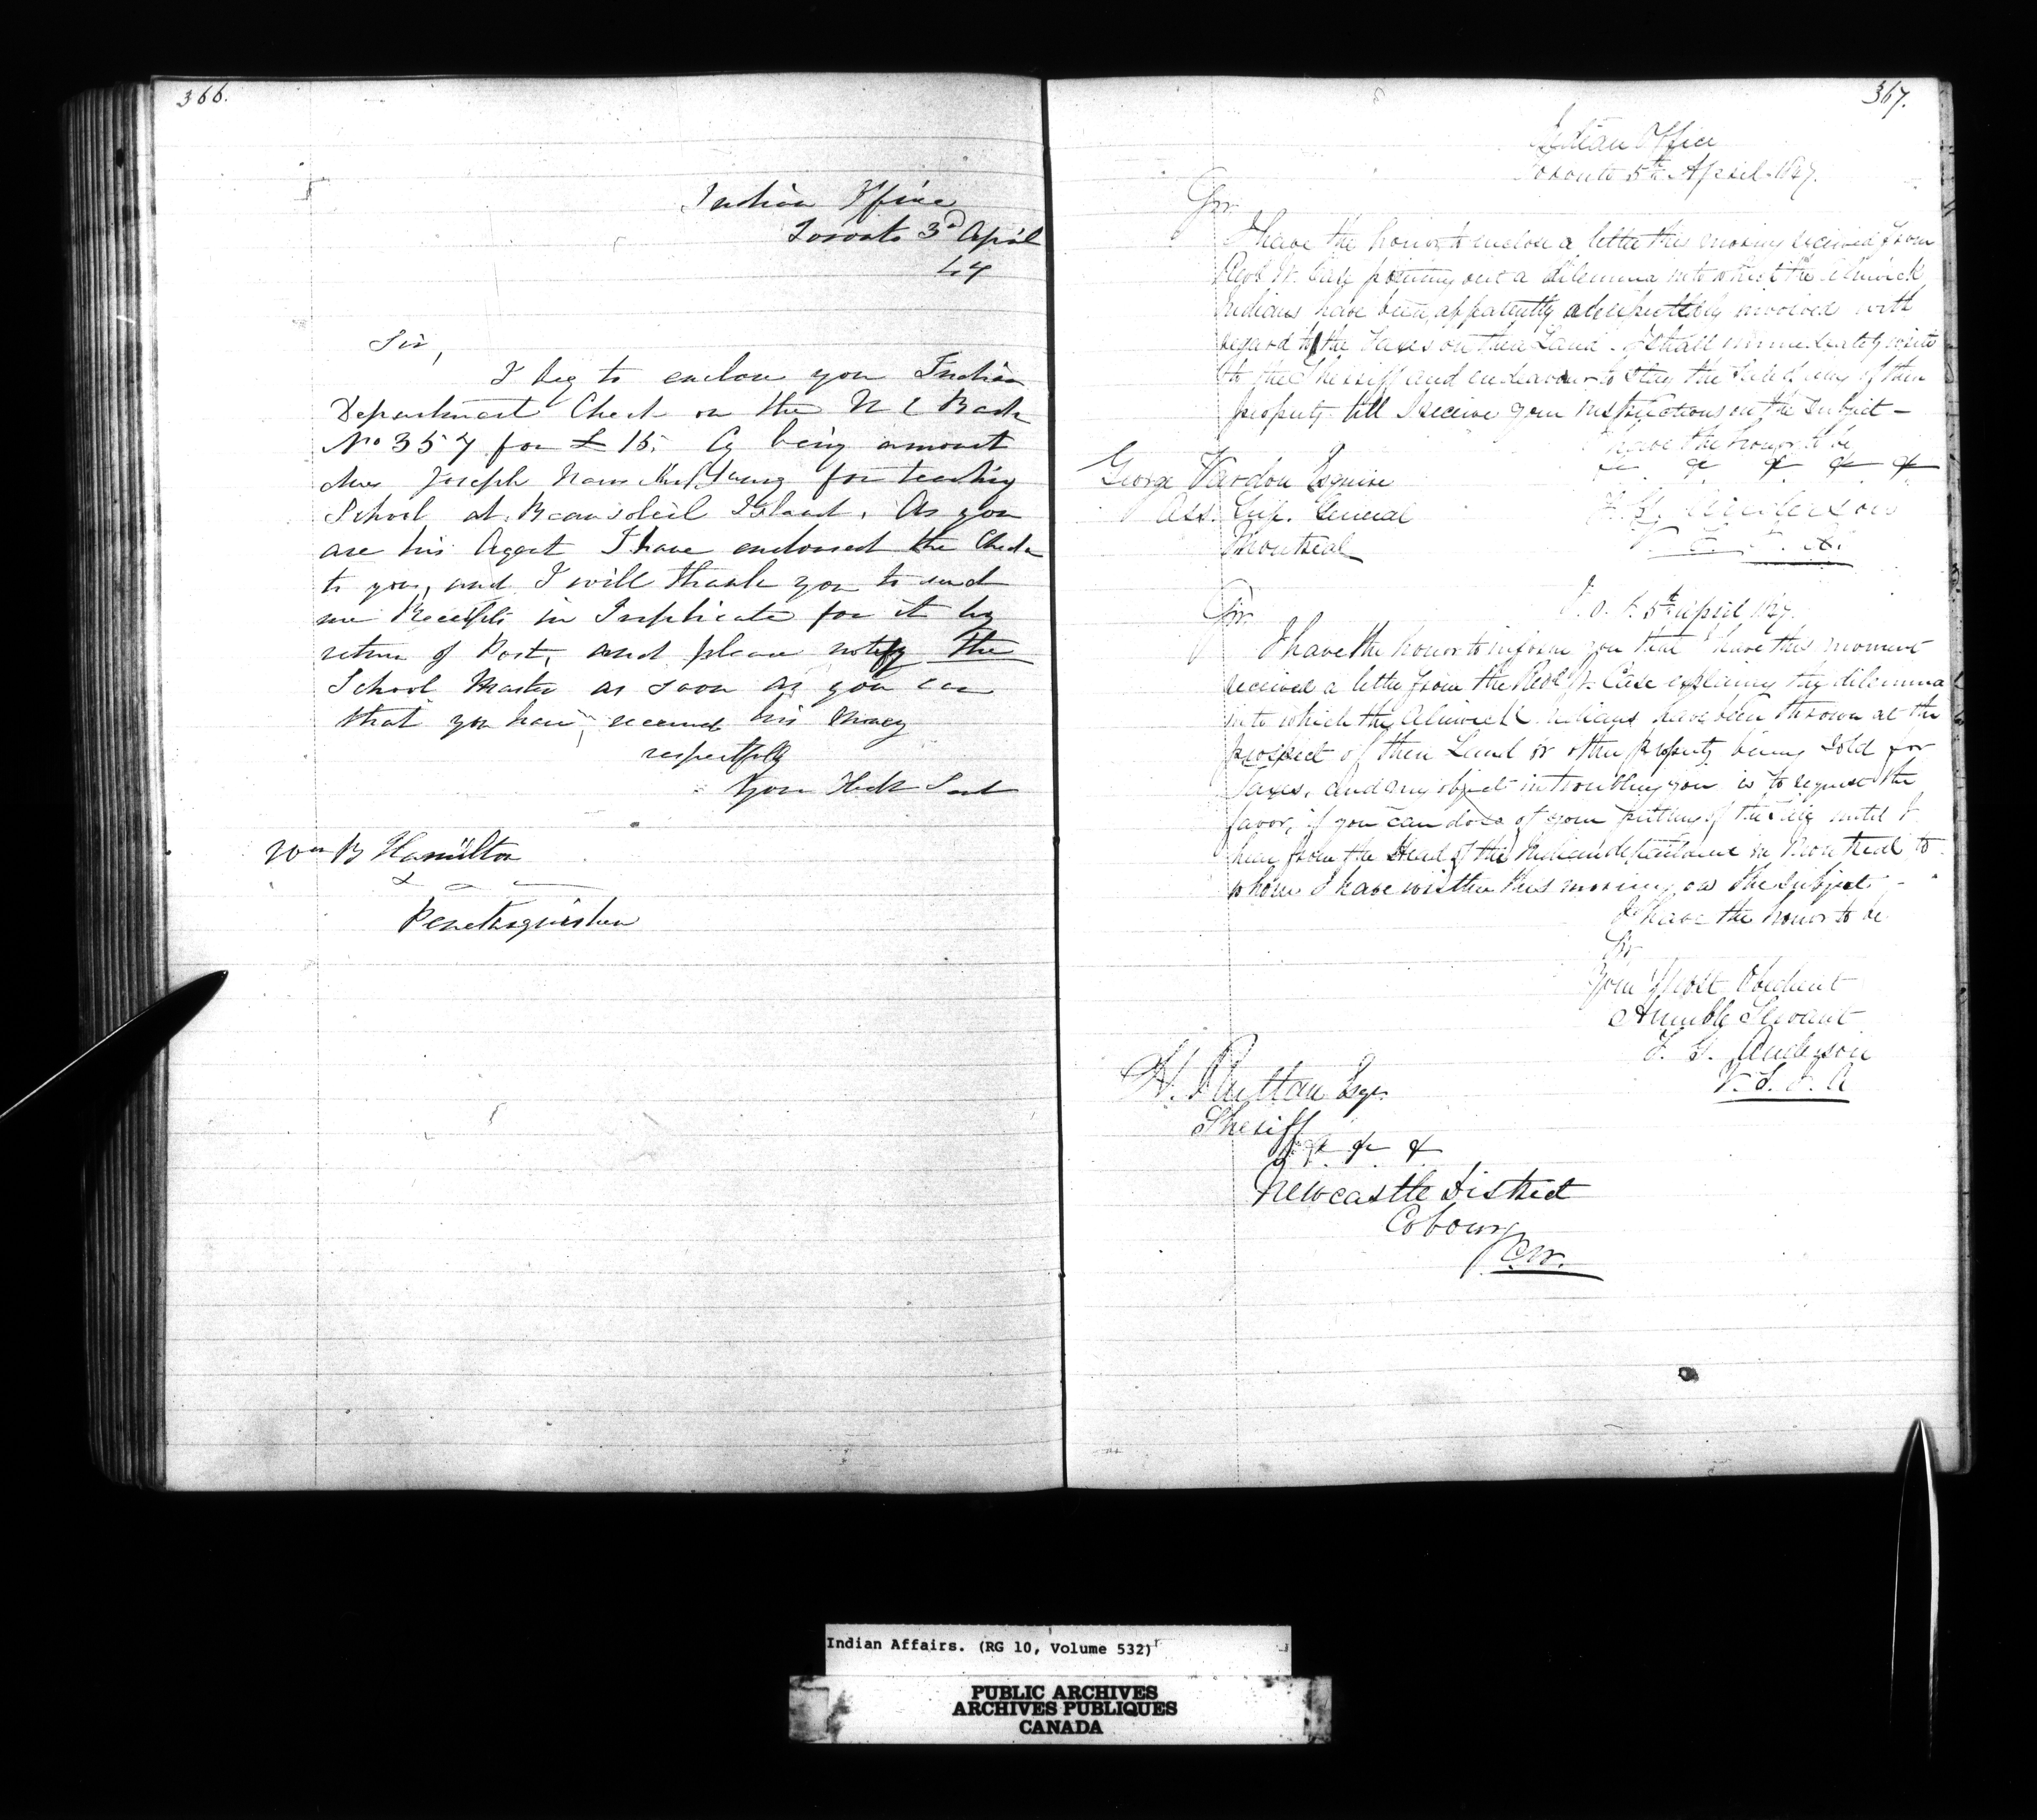 366.
Indian Office
Toronto 3d April
47
Sir,
I beg to enclose you Indian
Department Check on the U C Bank
No 357 for £ 15. Cy being amount
due Joseph for teaching
School at Beausoleil Island. As you
are his Agent I have endorsed the Check
to you, and I will thank you to send
me Receipts in Triplicate for it by
return of Post, and please notify the
School Master as soon as you can
that you have received his Money
respectfully
Your Hble Sert
Wm B Hamilton
Penetanguishen
367.
Indian Office
Toronto 5th April 1847.
Sir
I have the honor to enclose a letter this morning received from
Revd W. Case pointing out a dilemma into which the Alnwick
Indians have been, apparently involved with
regard to the Taxes on their Land. I shall immediately write
to the Sherriff and endeavour to stay the Sale of any of their
property till I receive your instructions on the subject -
I have the honor to be
& & & & &
George Vardon Esquire
Ass. Sup. General
Montreal
T. G. Anderson
V. S. I. A.
I. O. T. 5th April 1847.
Sir
I have the honor to inform you that I have this moment
received a letter from the Revd W. Case explaining the dilemma
into which the Alnwick Indians have been thrown at the
prospect of their Land or other property being sold for
Taxes, and my object in troubling you is to request the
favor, if you can do so of your putting off the until I
hear from the Head of the Indian department in Montreal to
whom I have written this morning on the subject -
I have the honor to be
Sir
Your Most Obedient
Humble Servant
T. G. Anderson
V. S. I. A
H. Ruttan Esqr.
Sheriff
& & &
Newcastle District
Cobourg
C.W.
Indian Affairs. (RG 10, Volume 532)
PUBLIC ARCHIVES
ARCHIVES PUBLIQUES
CANADA